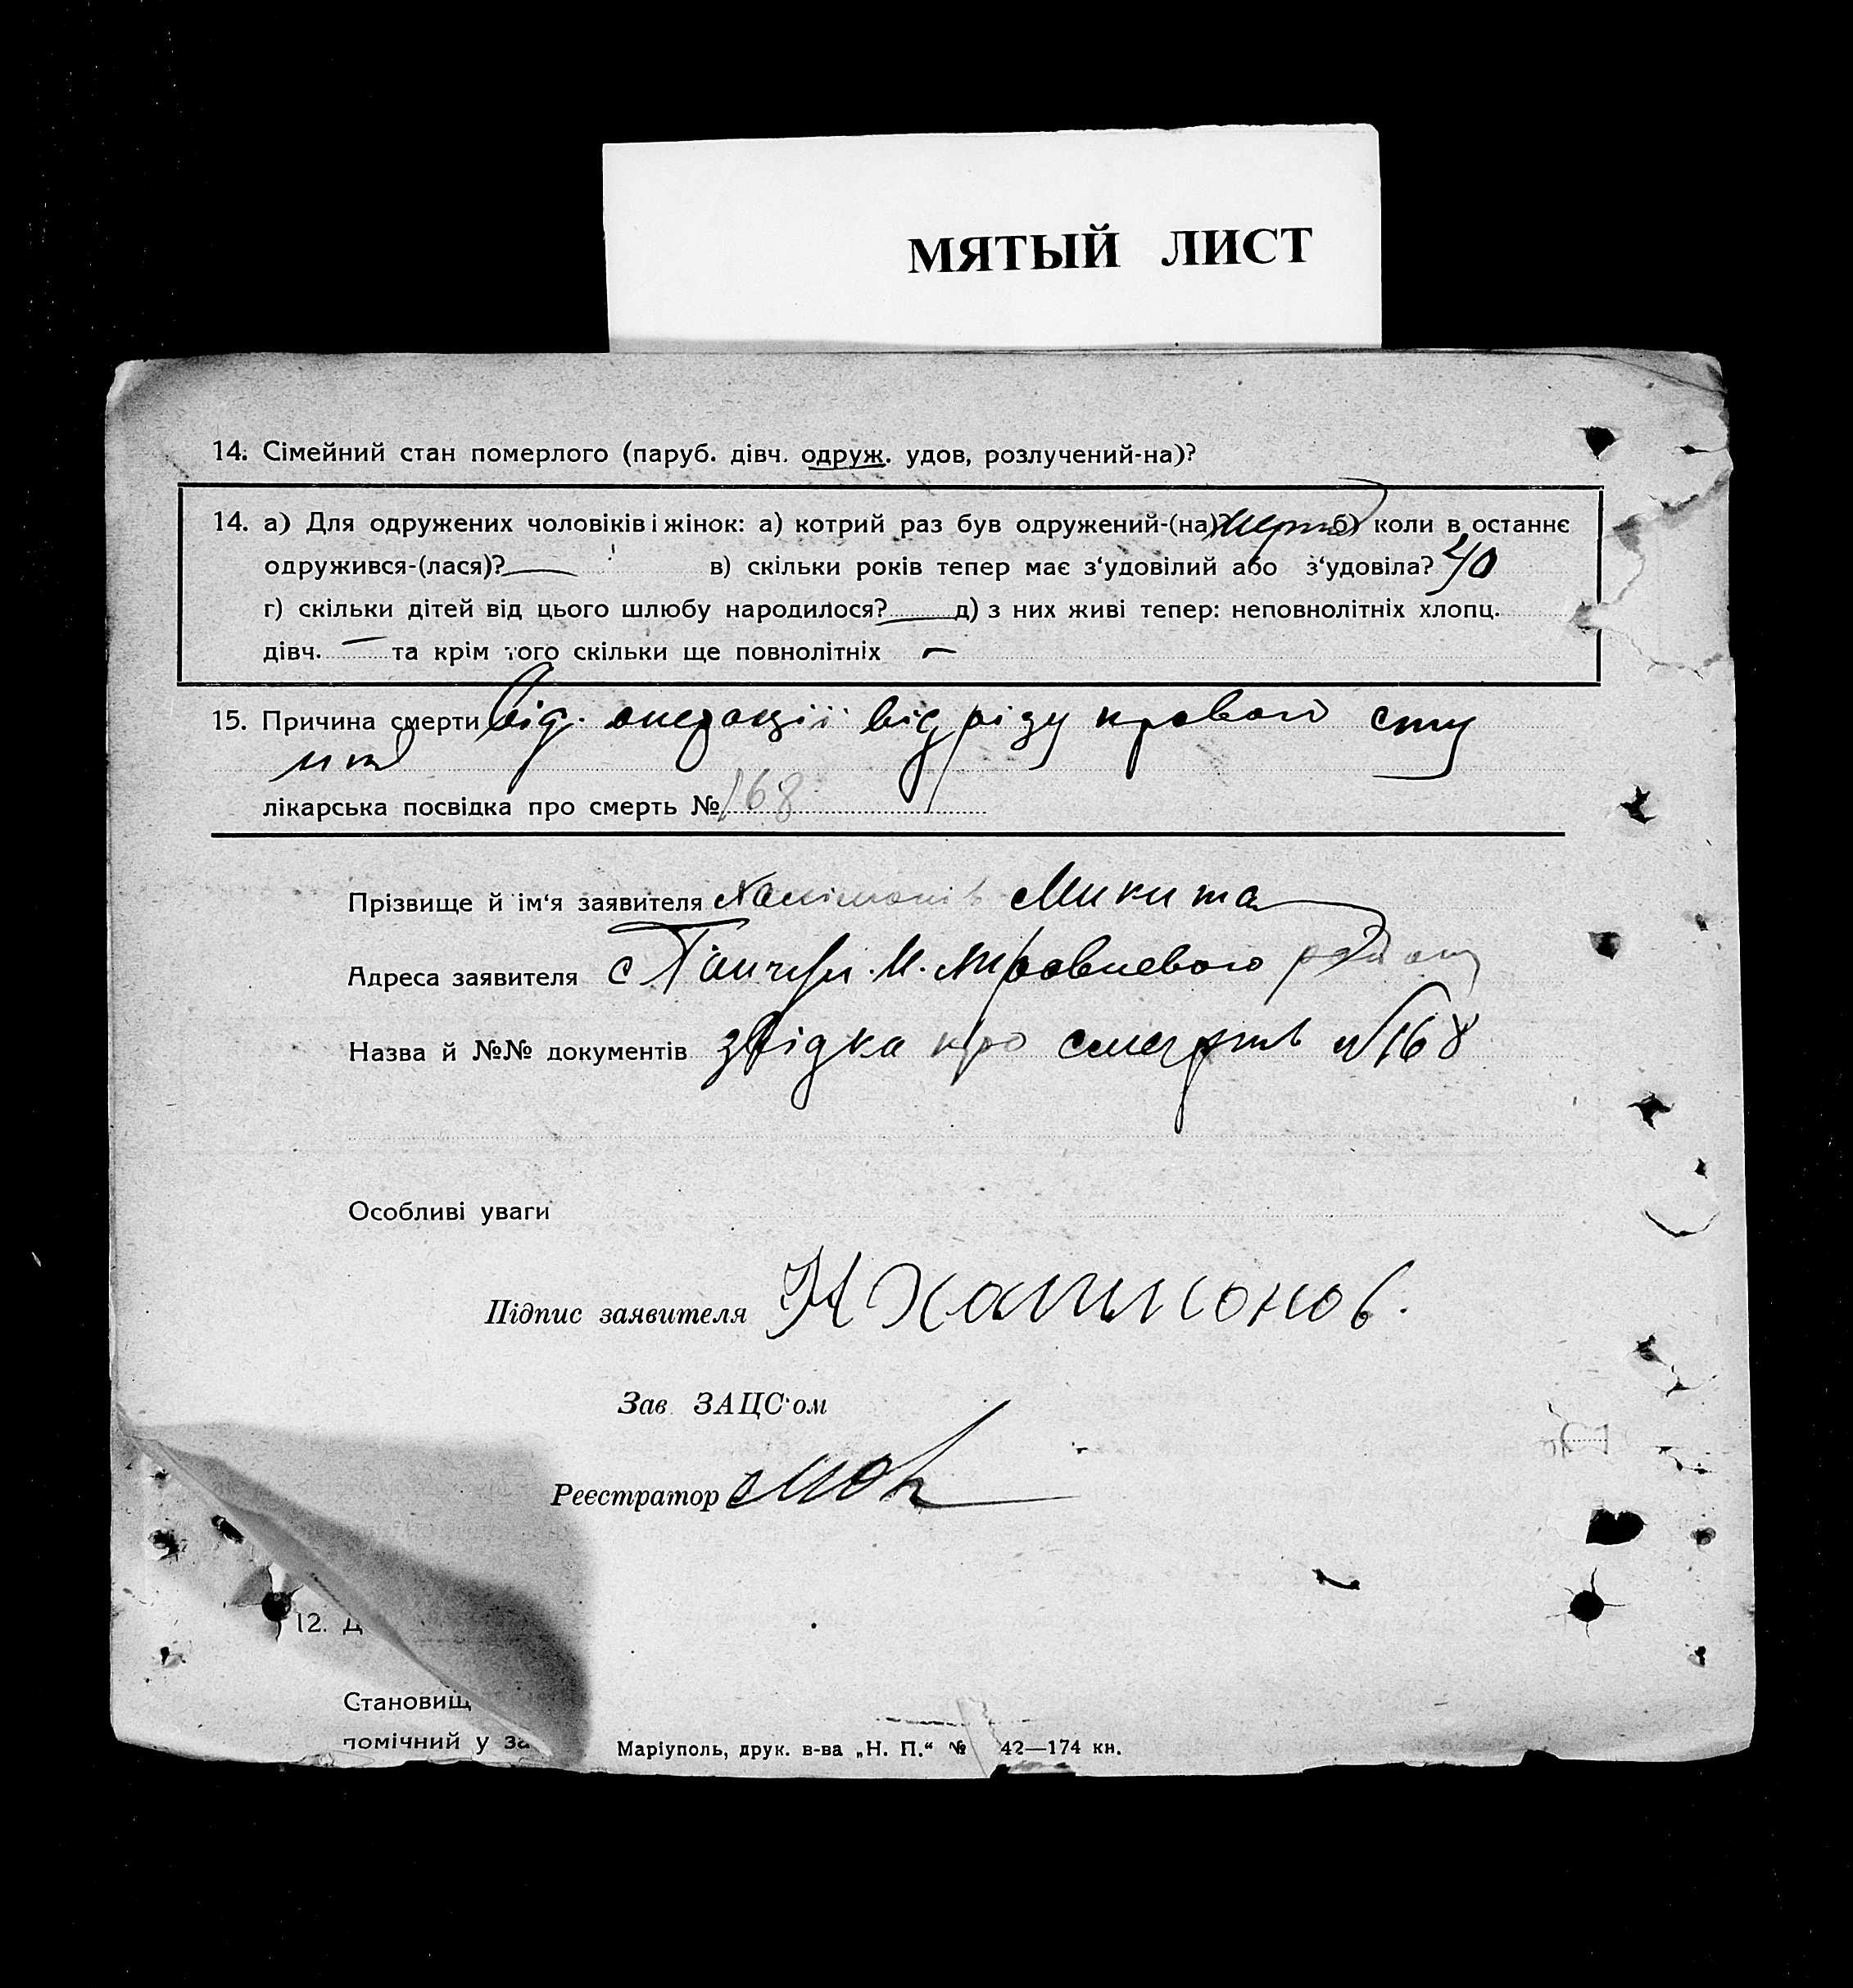 МЯТЫЙ ЛИСТ
14. Сімейний стан померлого (паруб. дівч. одруж. удов, розлучений-на)?
14. а) Для одружених чоловіків і жінок: а) котрий раз був одружений-(на)? б) коли в останнє
одружився-(лася)? — в) скільки років тепер має з‘удовілий або з‘удовіла? 40
г) скільки дітей від цього шлюбу народилося? — д) з них живі тепер: неповнолітніх хлопц.
дівч. — та крім того скільки ще повнолітніх —
15. Причина смерти Від. операції від різу кравого
лікарська посвідка про смерть № 168
Прізвище й ім‘я заявителя Микита
Адреса заявителя с
Назва й №№ документів звідка про смерть №168
Особливі уваги
Підпис заявителя Н Халимонов.
Зав ЗАЦС‘ом
Реєстратор
12. Д
Становищ
помічний у за
Маріуполь, друк. в-ва „Н. П.“ № 42—174 кн.